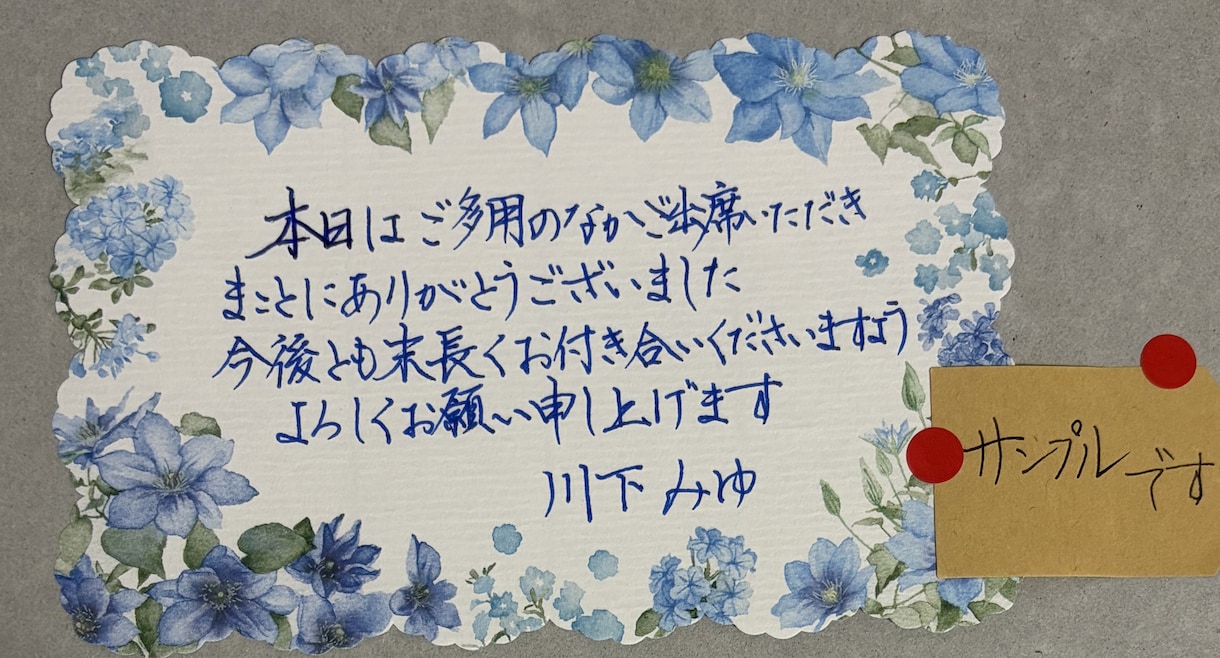 本日はご多用のなかご出席いただき
まことにありがとうございました
今後とも末長くお付き合いくださいますよう
よろしくお願い申し上げます
川下みゆ
サンプルです